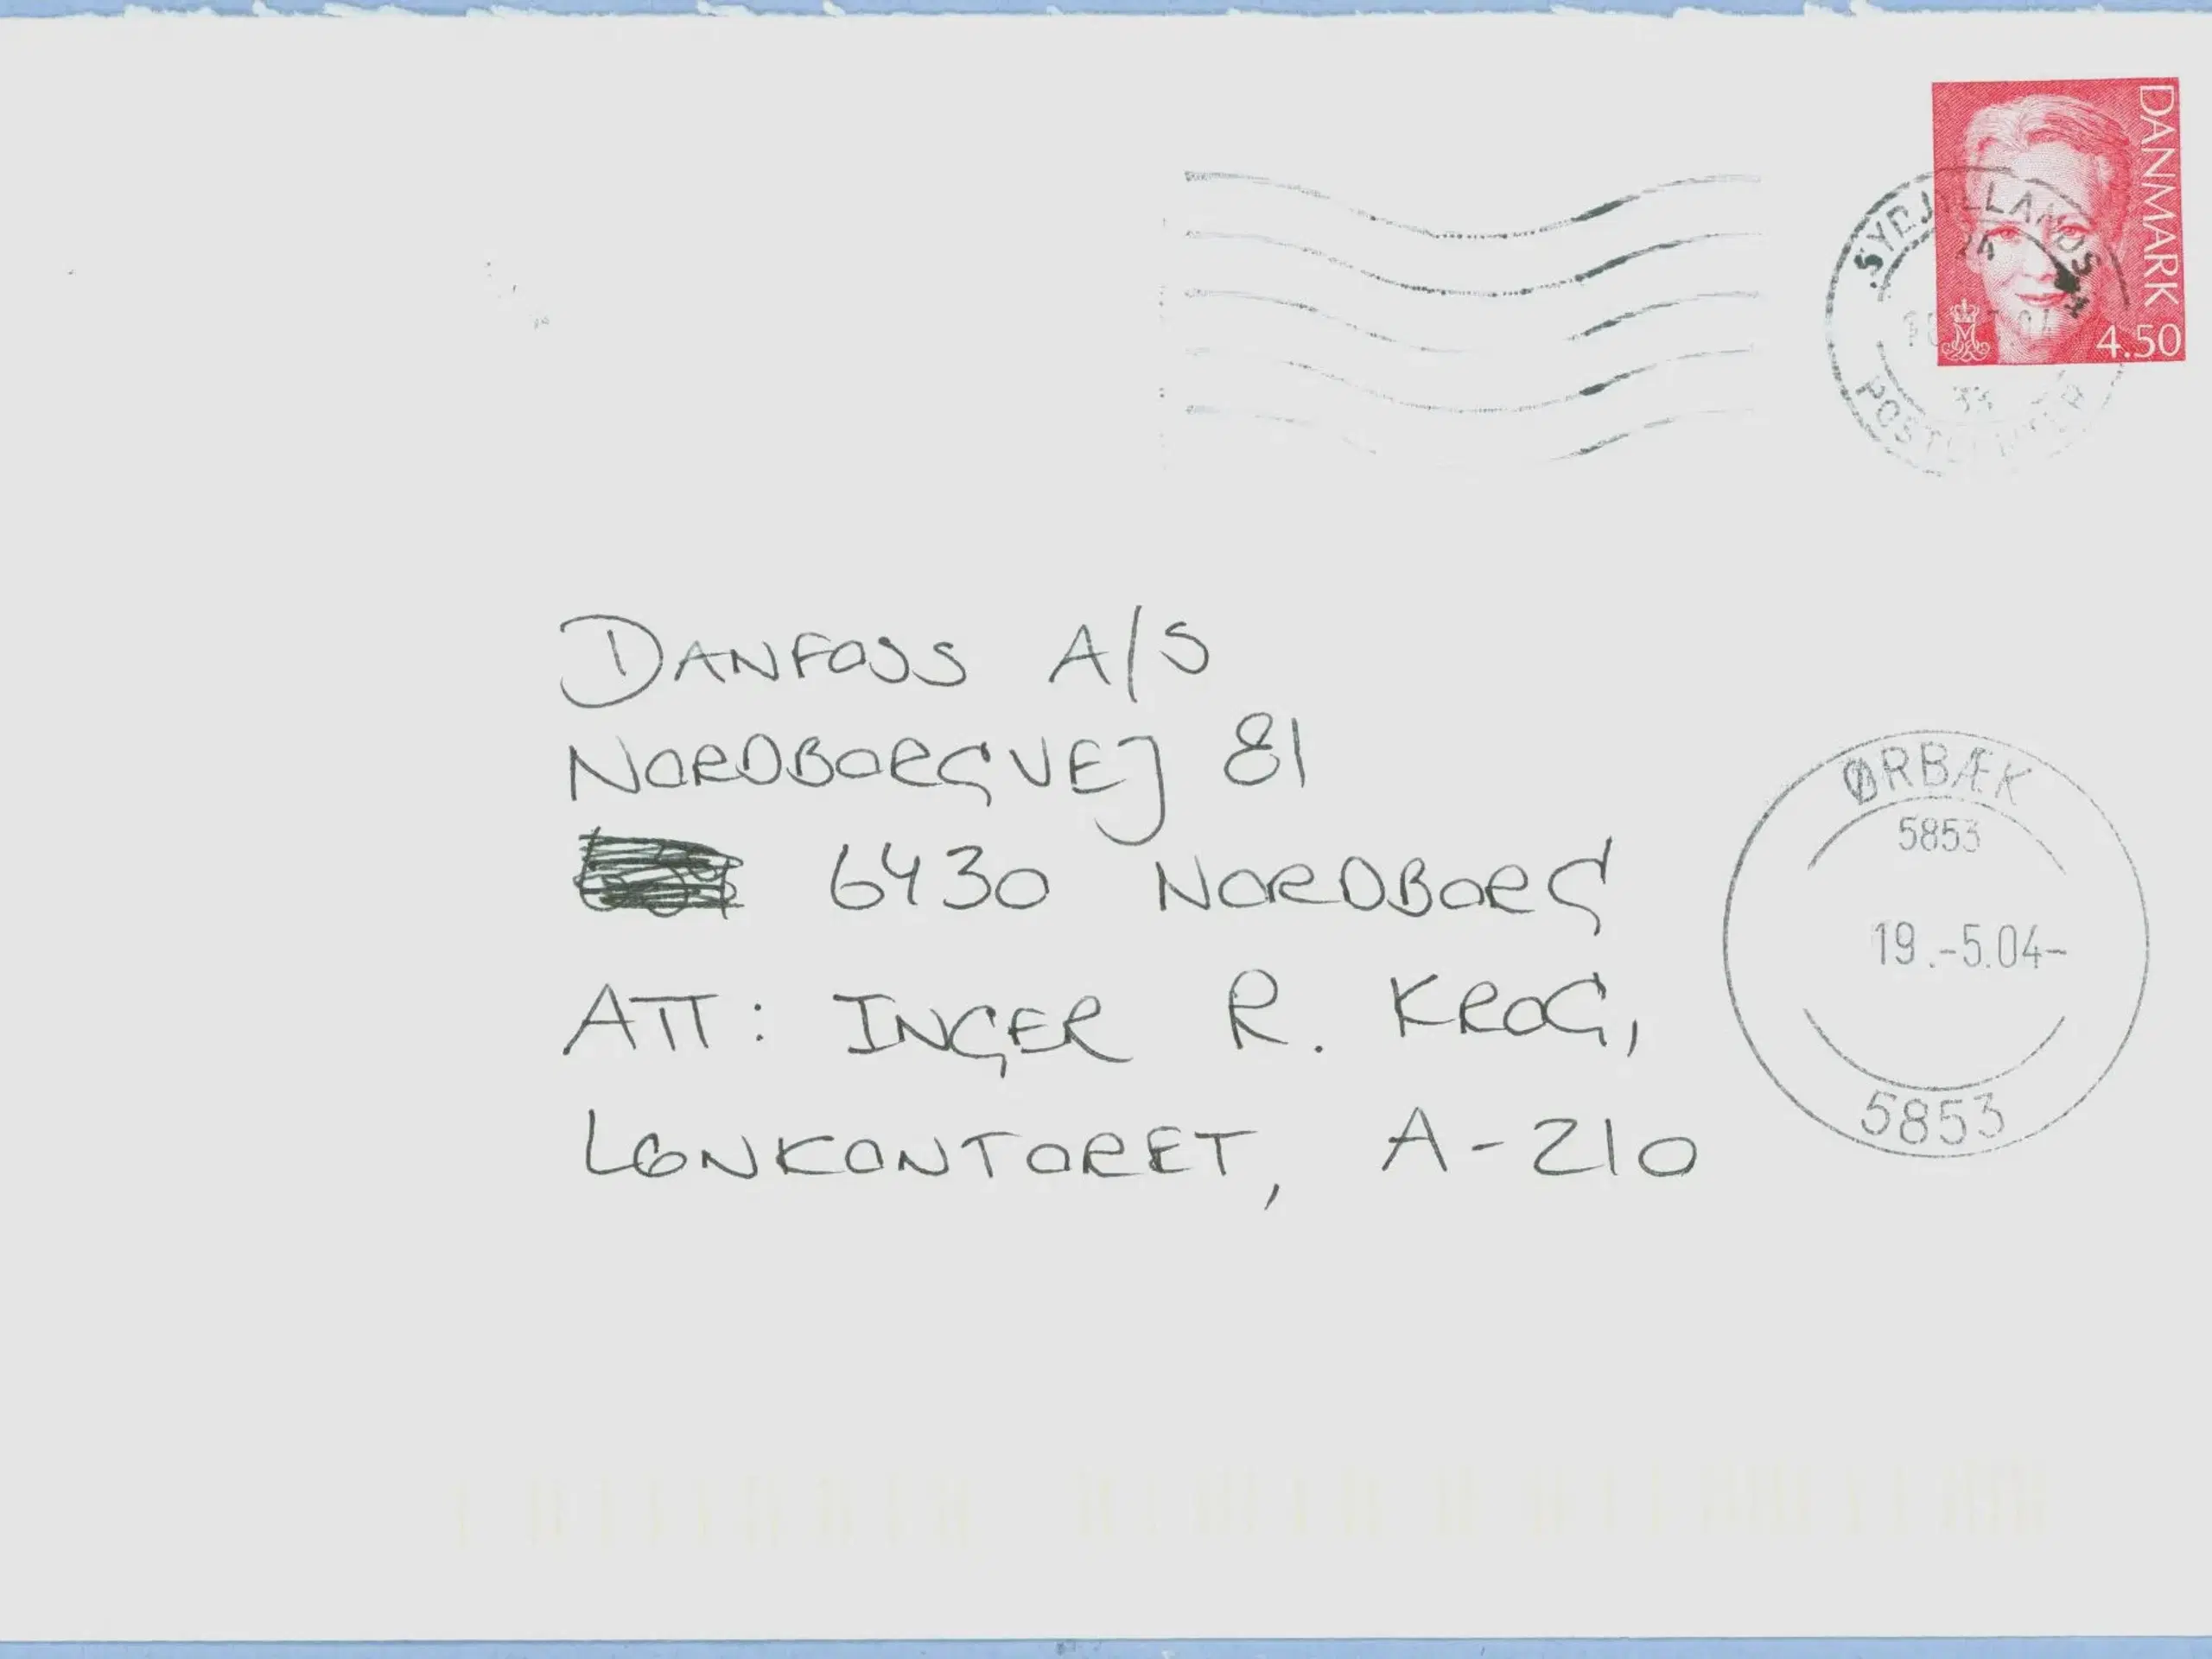 DANMARK
4.50
SYDJYLLANDS
POSTCENTER
33
DANFOSS A/S
NORDBORGVEJ 81
6430 NORDBORG
ATT: INGER R. KROG,
LØNKONTORET, A-210
ØRBÆK
5853
19.-5.04-
5853